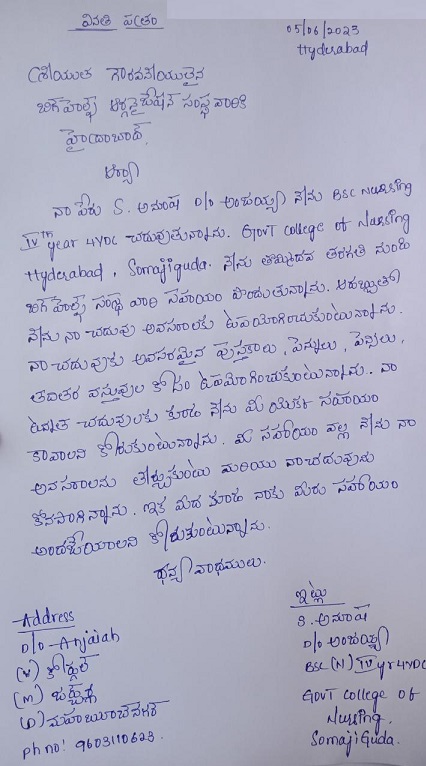 వినతి పత్రం
05/06/2023
Hyderabad
శ్రీయుత గౌరవనీయులైన
బిగ్ హెల్ప్ ఆర్గనైజేషన్ సంస్థ వారికి
హైదాబాద్,
ఆర్యా
నా పేరు S. అనూష D/o అంజయ్య నేను BSC Nursing
IVth year 4YDC చదువుతున్నాను. Govt college of Nursing
Hyderabad, Somajiguda. నేను తొమ్మిదవ తరగతి నుండి
బిగ్ హెల్ప్ సంస్థ వారి సహాయం పొందుతున్నాను. ఆ డబ్బుతో
నేను నా చదువు అవసరాలకు ఉపయోగించుకుంటున్నాను.
నా చదువుకు అవసరమైన పుస్తకాలు, పెన్నులు, పెన్సిలు,
తదితర వస్తువుల కోసం ఉపయోగించుకుంటున్నాను.. నా
ఉన్నత చదువులకు కూడా నేను మీ యొక్క సహాయం
కావాలని కోరుకుంటున్నాను. మీ సహాయం వల్ల నేను నా
అవసరాలను తీర్చుకుంటు మరియు నా చదువును
కొనసాగిన్నాను. ఇక మీద కూడా నాకు మీరు సహాయం
అందజేయాలని కోరుకుంటున్నాను.
ధన్యవాధములు.
ఇట్లు
S. అనూష
D/o అంజయ్య
BSC (N) IV yr 4YDC
Govt college of
Nursing.
SomajiGuda.
Address
D/o - Anjaiah
(v)
(m)
(D) మహబూబ్ నగర్
ph no: 9603110623.